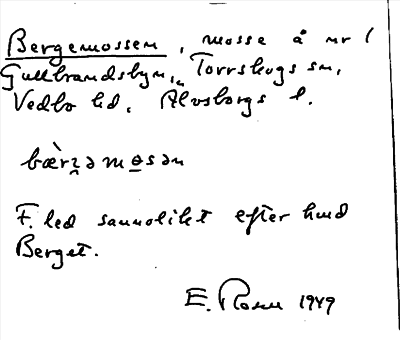 Bergemossen, mosse å nr 1
Gullbrandsbyn, Torrskogs sn,
Vedbo hd, Älvsborgs l.
bæ̀rʒ̣əmɵ̲sən
F. led sannolikt efter hmd
Berget.
E. Rosen 1949